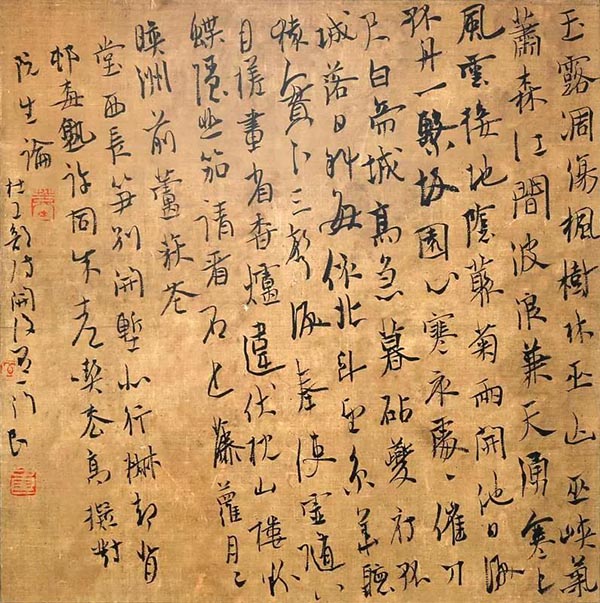 玉露凋傷楓樹林巫山巫峽氣
蕭森江間波浪兼天湧塞上
風雲接地陰叢菊兩開他日淚
孤舟一繫故園心寒衣處々催刀
尺白帝城高急暮砧夔府孤
城落日斜每依北斗望京華聽
猿實下三聲淚奉使虛隨八
月槎畫省香爐違伏枕山樓粉
蝶隱悲笳請看石上藤蘿月已
暎洲前蘆荻花
堂西長笋別開塹北行椒却背
邨梅熟許同朱老喫松高擬對
阮生論
杜工部詩開後遺一門